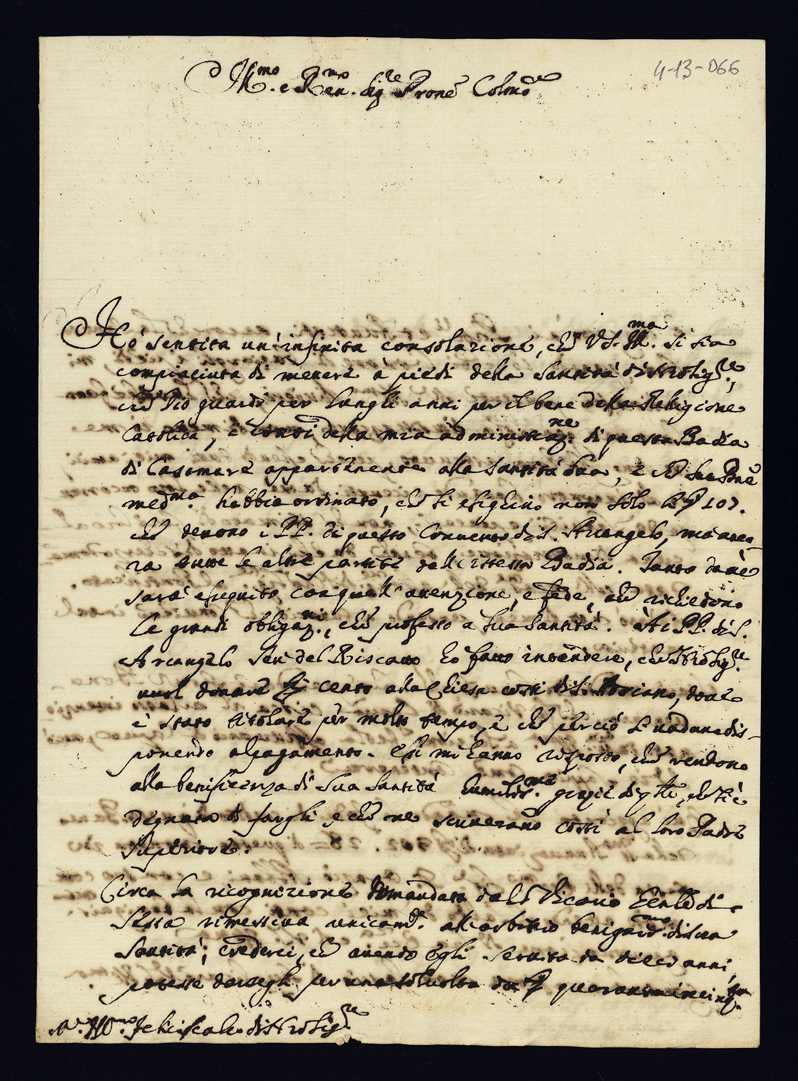 4-13-066
Ill.mo e Rev.mo Sig.re Prone Colmo
Hò sentita un'infinita consolazione, che V.S. Ill.ma si sia
compiaciuta di mettere à piedi della Santità di Nro Sig.re,
che Dio guardi per lunghi anni per il bene della Religione
Cattolica, i conti della mia administraz.ne di questa Badia
di Casamare appartenente alla Santità Sua, e che
med.ma habbia ordinato, che si esighino non solo 107.
che devono i PP. di questo Convento di S. Arcangelo, ma anco-
ra tutte le altre partite dell'istessa Badia. Tanto
sarà eseguito con quell'attenzione, e fede, che richiedono
le grandi obligaz.ni, che professo a Sua Santità. À i PP. di S.
Arcangelo hò fatto intendere, che Nro Sig.re
vuol donare cento alla Chiesa costì di S. dove
è stato titolare per molto tempo, e che perciò si vadano dis-
ponendo al pagamento. Essi mi hanno risposto, che rendono
alla beneficenza di Sua Santità humiliss.me grazie di che si è
degnata di fargli e che ne scriverano costì al loro Padre
Superiore.
Circa la ricognizione domandata dal Vicario di
Sessa rimessiva unicam.te all'arbitrio benign.mo di Sua
Santità; crederei, che avendo egli servita da dieci anni,
potesse darsegli per una sol volta quaranta in
Ill.mo di Nro Sig.re